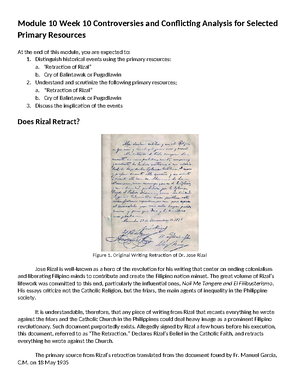 Module 10 Week 10 Controversies and Conflicting Analysis for Selected
Primary Resources
At the end of this module, you are expected to:
1. Distinguish historical events using the primary resources:
a. "Retraction of Rizal"
b. Cry of Balintawak or Pugadlawin
2. Understand and scrutinize the following primary resources;
a. "Retraction of Rizal"
b. Cry of Balintawak or Pugadlawin
3. Discuss the implication of the events
Does Rizal Retract?
Figure 1. Original Writing Retraction of Dr. Jose Rizal
Jose Rizal is well-known as a hero of the revolution for his writing that center on ending colonialism
and liberating Filipino minds to contribute and create the Filipino nation mindset. The great volume of Rizal's
lifework was committed to this end, particularly the influential ones, Noli Me Tangere and El Filibusterismo.
His essays criticize not the Catholic Religion, but the friars, the main agents of inequality in the Philippine
society.
It is understandable, therefore, that any piece of writing from Rizal that recants everything he wrote
against the friars and the Catholic Church in the Philippines could deal heavy damage as a prominent Filipino
revolutionary. Such document purportedly exists. Allegedly signed by Rizal a few hours before his execution,
this document, referred to as "The Retraction." Declares Rizal's Belief in the Catholic Faith, and retracts
everything he wrote against the Church.
The primary source from Rizal's retraction translated from the document found by Fr. Manuel Garcia,
C.M. on 18 May 1935